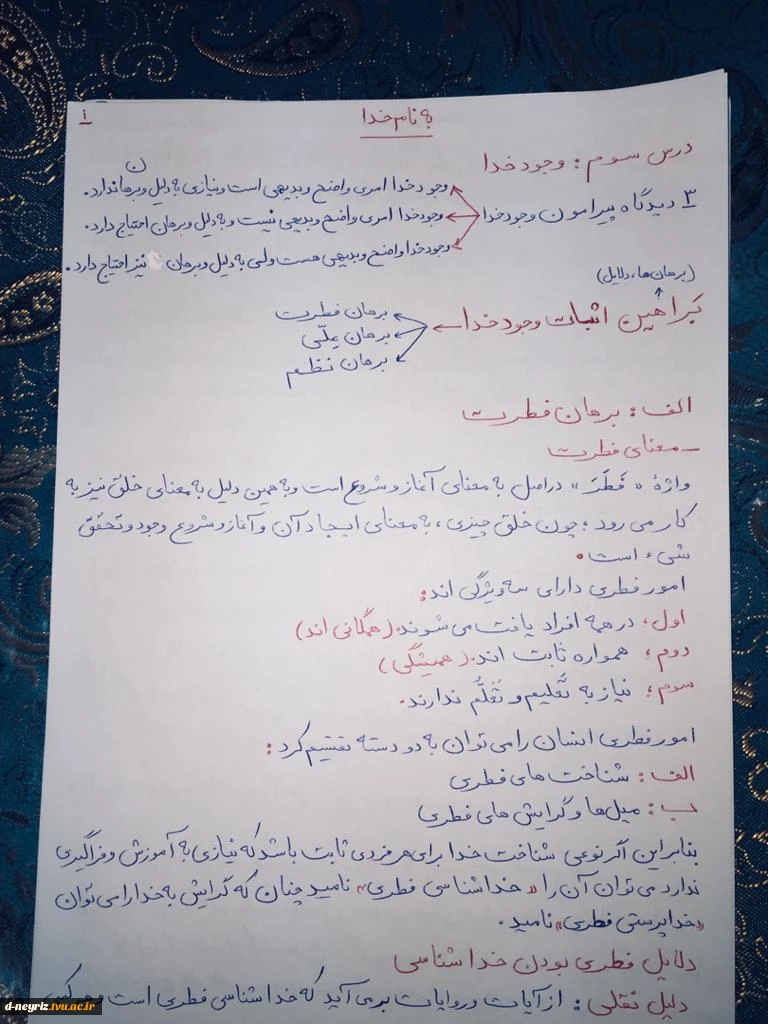 به نام خدا
۱
درس سوم : وجود خدا
۳ دیدگاه پیرامون وجود خدا
وجود خدا امری واضح و بدیهی است و نیازی به دلیل و برهان ندارد.
وجود خدا امری واضح و بدیهی نیست و به دلیل و برهان احتیاج دارد.
وجود خدا واضح و بدیهی هست ولی به دلیل و برهان نیز احتیاج دارد.
(برهان‌ها، دلایل)
براهین اثبات وجود خدا
برهان فطرت
برهان علّی
برهان نظم
الف : برهان فطرت
- معنای فطرت
واژهٔ « فَطَرَ » در اصل به معنای آغاز و شروع است و به همین دلیل به معنای خلق نیز به
کار می رود ؛ چون خلق چیزی ، به معنای ایجاد آن و آغاز و شروع وجود و تحقق
شیء است .
امور فطری دارای سه ویژگی اند :
اول ؛ در همه افراد یافت می شوند . (همگانی اند)
دوم ؛ همواره ثابت اند . (همیشگی)
سوم ؛ نیاز به تَعلیم و تَعَلُّم ندارند .
امور فطری انسان را می توان به دو دسته تقسیم کرد :
الف : شناخت های فطری
ب : میل‌ها و گرایش های فطری
بنابراین اگر نوعی شناخت خدا برای هر فردی ثابت باشد که نیازی به آموزش و فراگیری
ندارد می توان آن را « خداشناسی فطری » نامید چنان که گرایش به خدا را می توان
«خداپرستی فطری» نامید .
دلایل فطری بودن خداشناسی
دلیل نقلی : از آیات و روایات برمی آید که خداشناسی فطری است و هر کس
d-neyriz.tvu.ac.ir